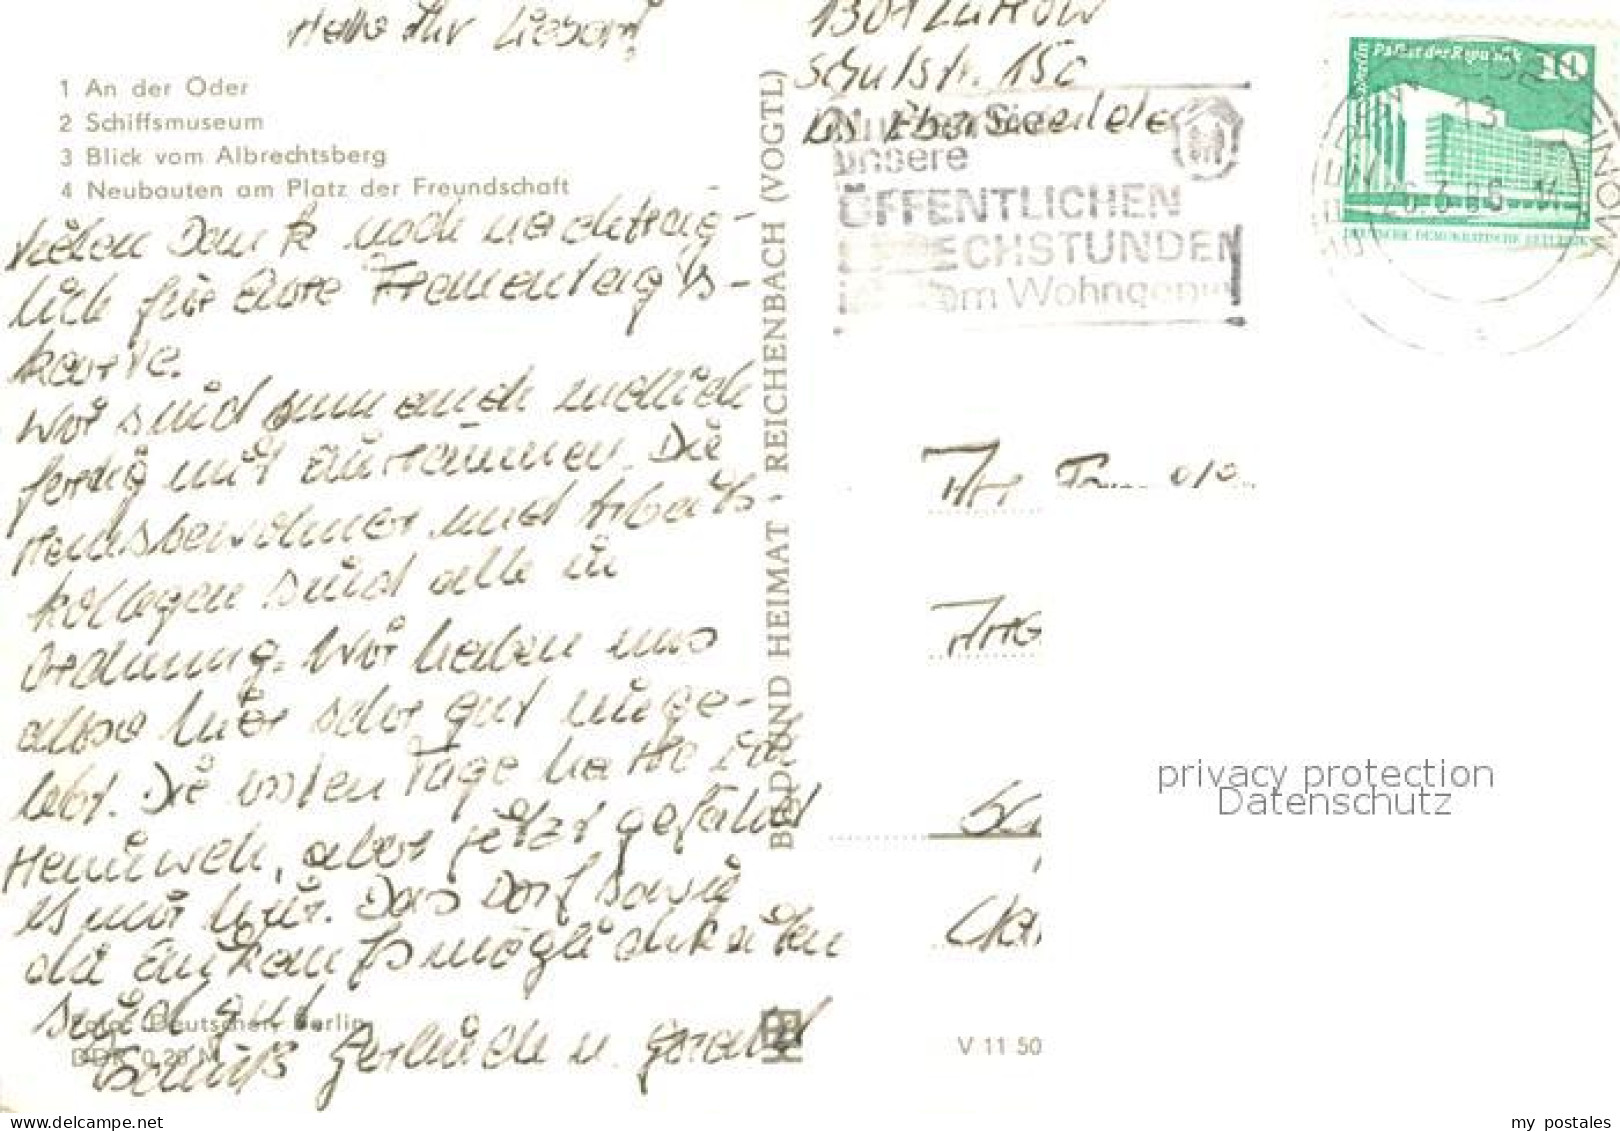 Hallo Ihr Lieben!
1 An der Oder
2 Schiffsmuseum
3 Blick vom Albrechtsberg
4 Neubauten am Platz der Freundschaft
Vielen Dank noch nachträg-
lich für Eure Frauentags-
karte.
Wir sind nun auch endlich
fertig mit Einräumen. Die
Hausbewohner und Arbeits-
kollegen sind alle in
Ordnung. Wir haben uns
also hier sehr gut einge-
lebt. Die ersten Tage hatte ich
Heimweh, aber jetzt gefällt
es mir hier. Das Dorf sowie
die Einkaufsmöglichkeiten
sind gut.
Foto: Deutscher, Berlin
DDR 0,20 M
Tschüß Gerlinde u.
BILD UND HEIMAT · REICHENBACH (VOGTL)
1301
Schulstr. 15c
unsere
ÖFFENTLICHEN
SPRECHSTUNDEN
Berlin Palast der Republik 10
DEUTSCHE DEMOKRATISCHE REPUBLIK
13
An
V 11 50
privacy protection
Datenschutz
my_postales